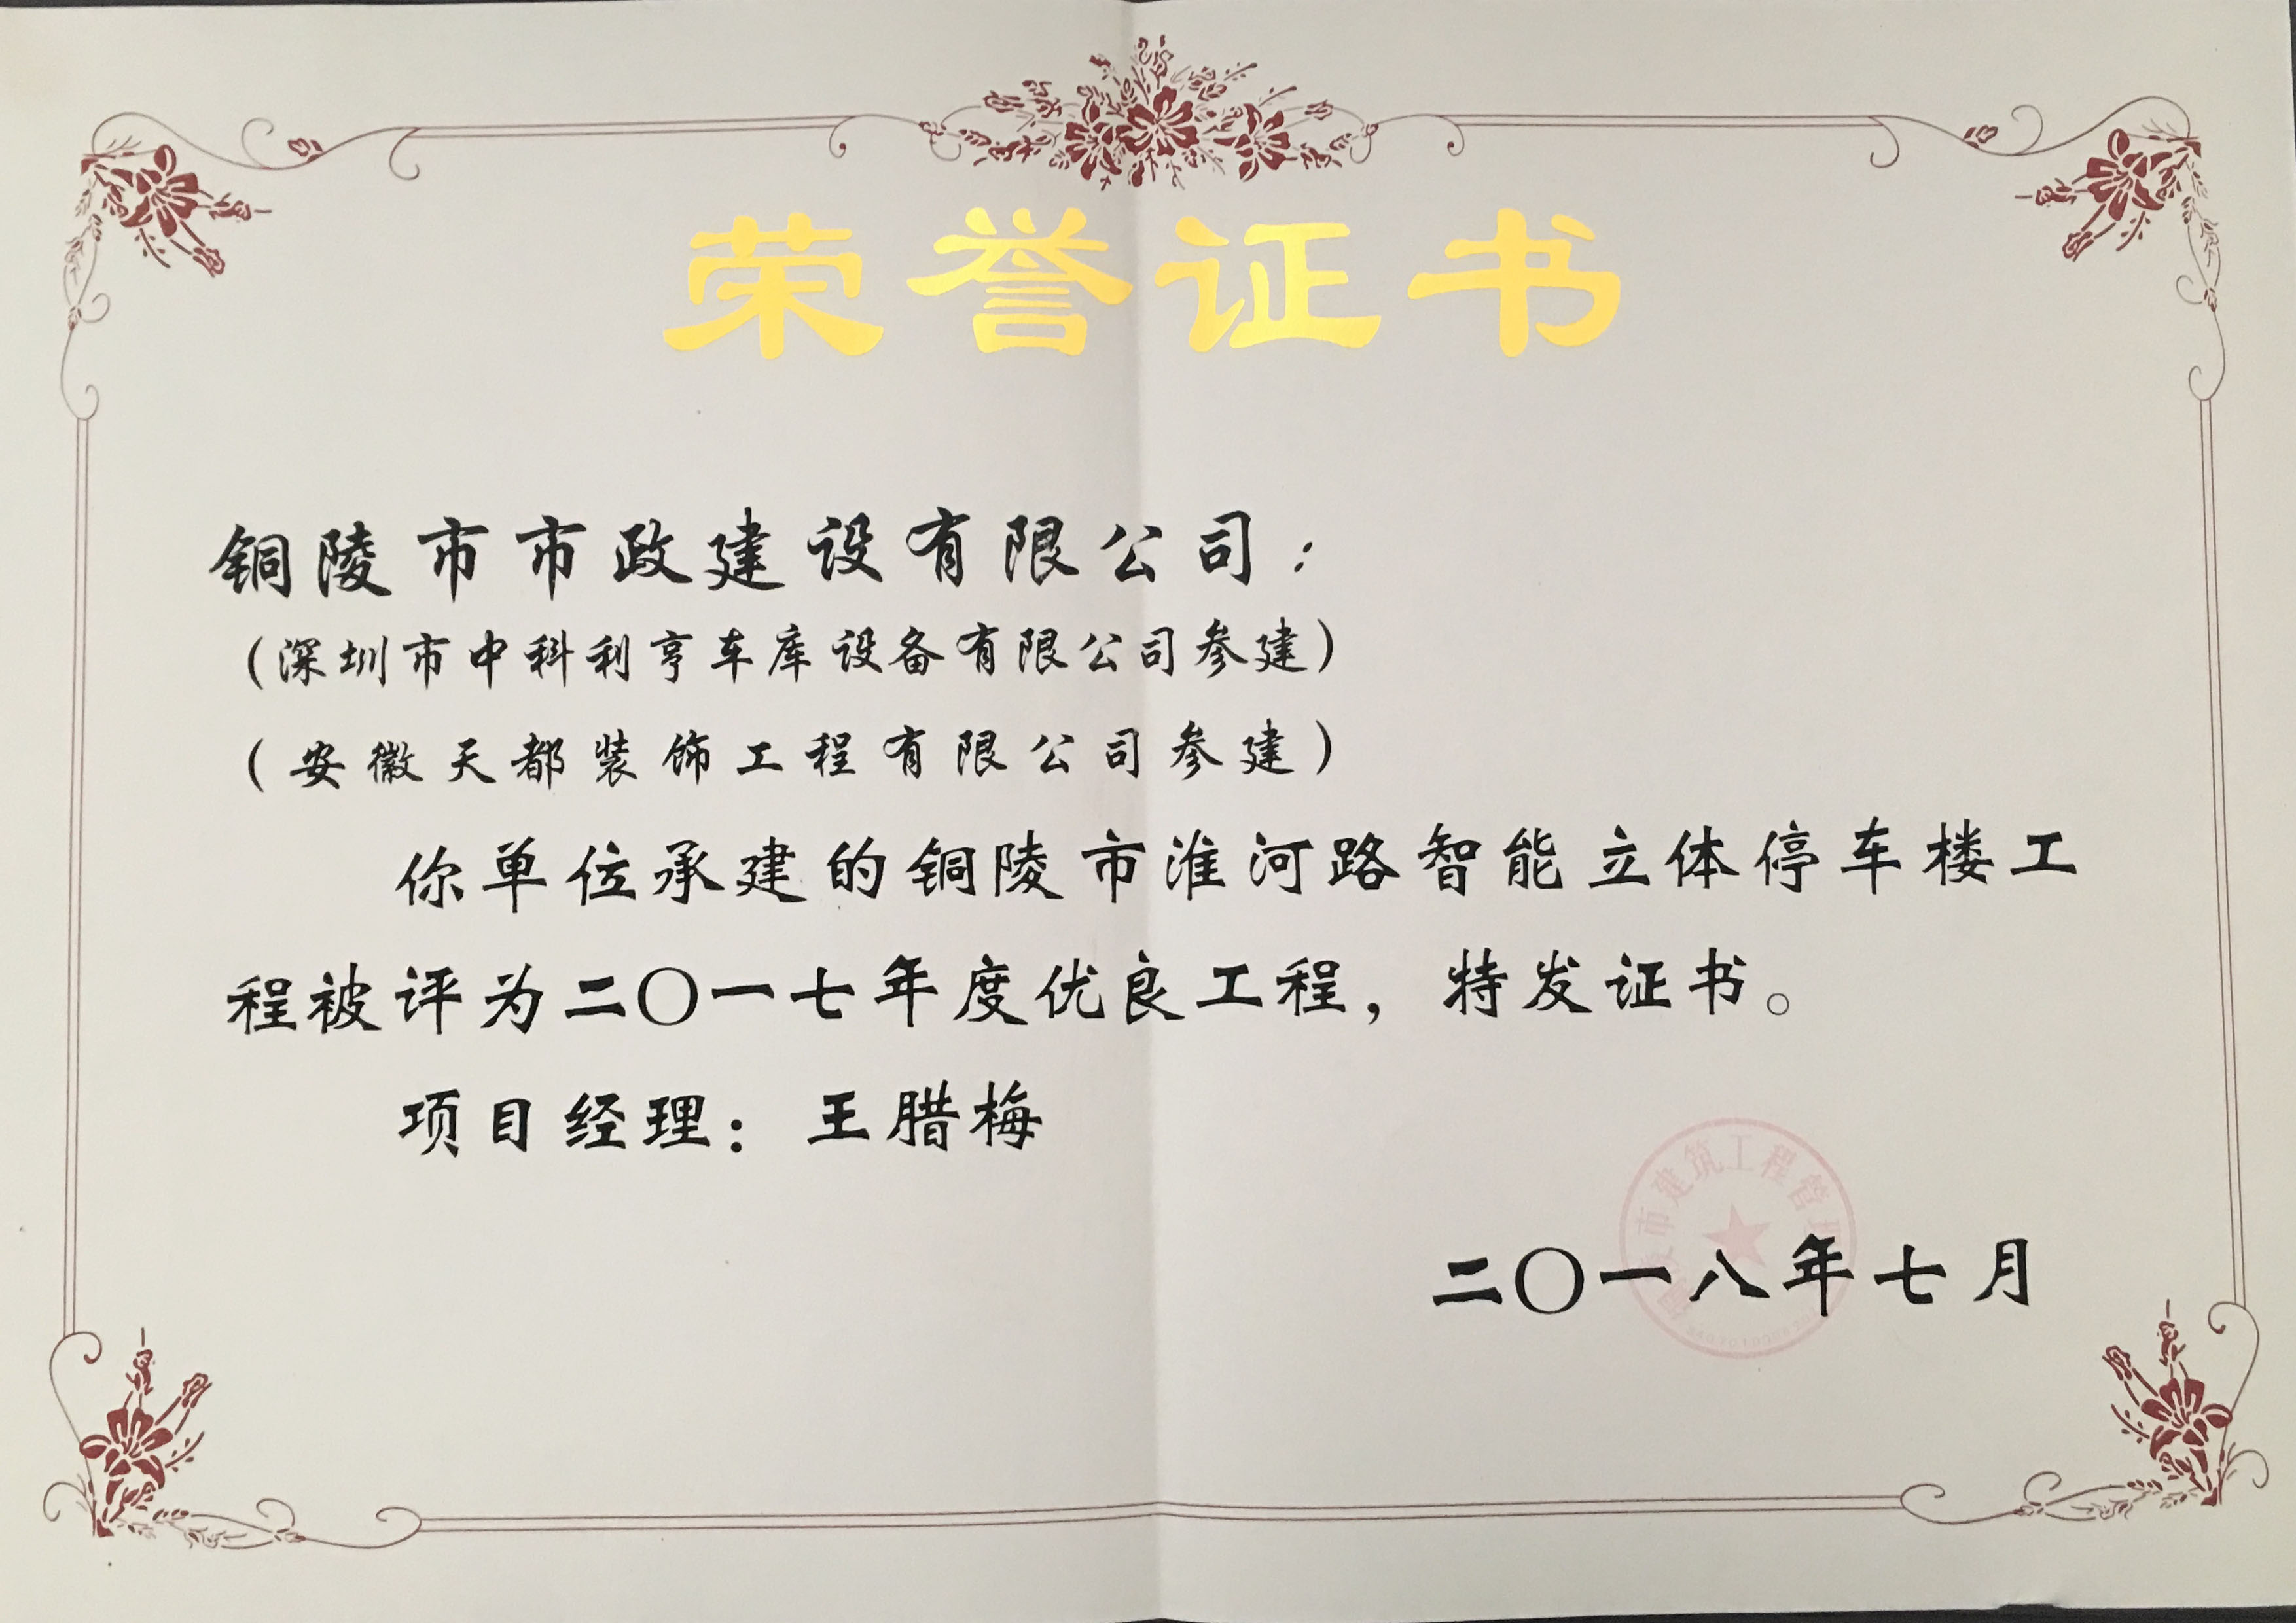 荣誉证书
铜陵市市政建设有限公司：
（深圳市中科利亨车库设备有限公司参建）
（安徽天都装饰工程有限公司参建）
你单位承建的铜陵市淮河路智能立体停车楼工
程被评为二〇一七年度优良工程，特发证书。
项目经理：王腊梅
市建筑工程管理
二〇一八年七月